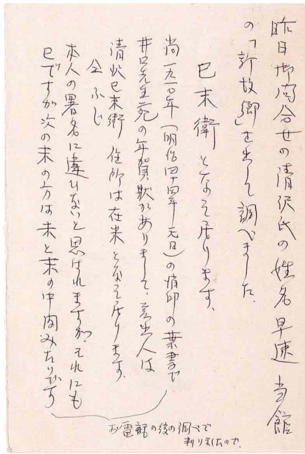 昨日御問合せの清沢氏の姓名早速当館
の「新故郷」を出して調べました、
巳末衛となって居ります、
尚一九一〇年(明治四十四年元日)の消印の葉書で
井口先生宛の年賀状がありまして、差出人は
清沢巳末衛 住所は在米となって居ります、
仝ふじ
本人の署名に違ひないと思はれますが、それにも
巳ですが次の末の方は未と末の中間みたりです
お電話の後の調べで
判りましたので、